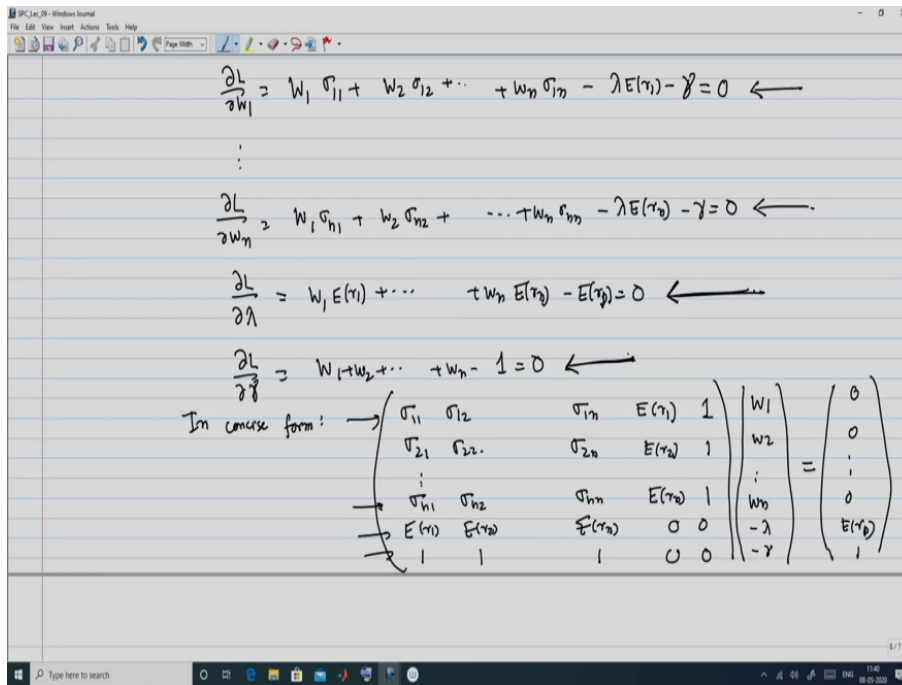 SPC_Lec_09 - Windows Journal
File Edit View Insert Actions Tools Help
Page Width
∂L/∂w₁ = w₁ σ₁₁ + w₂ σ₁₂ + ·· + wₙ σ₁ₙ − λE(r₁) − γ = 0 ←
⋮
∂L/∂wₙ = w₁ σₙ₁ + w₂ σₙ₂ + ··· + wₙ σₙₙ − λE(rₙ) − γ = 0 ←
∂L/∂λ = w₁ E(r₁) + ··· + wₙ E(rₙ) − E(rₚ) = 0 ←
∂L/∂γ = w₁ + w₂ + ·· + wₙ − 1 = 0 ←
In concise form: → σ₁₁ σ₁₂ σ₁ₙ E(r₁) 1 w1 0
σ₂₁ σ₂₂. σ₂ₙ E(r₂) 1 w2 = 0
⋮ ⋮ ⋮
→ σₙ₁ σₙ₂ σₙₙ E(rₙ) 1 wₙ 0
→ E(r₁) E(r₂) E(rₙ) 0 0 −λ E(rₚ)
→ 1 1 1 0 0 −γ 1
6/7
Type here to search
ENG
11:40
08-05-2020